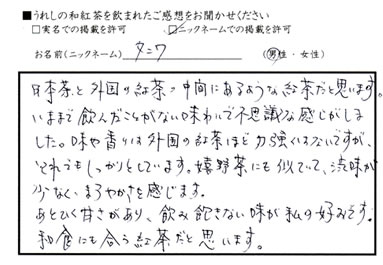 ■うれしの和紅茶を飲まれたご感想をお聞かせください
□実名での掲載を許可 ☑ニックネームでの掲載を許可
お名前(ニックネーム) タニワ (男性・女性)
日本茶と外国の紅茶の中間にあるような紅茶だと思います。
いままで飲んだことがない味わいで不思議な感じがしま
した。味や香りは外国の紅茶ほど力強くはないですが、
それでもしっかりとしています。嬉野茶にも似ていて、渋味が
少なく、まろやかさを感じます。
あとひく甘さがあり、飲み飽きない味が私の好みです。
和食にも合う紅茶だと思います。